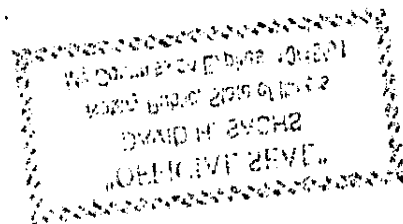 "OFFICIAL SEAL"
DAVID H. SACHS
Notary Public, State of Illinois
My Commission Expires